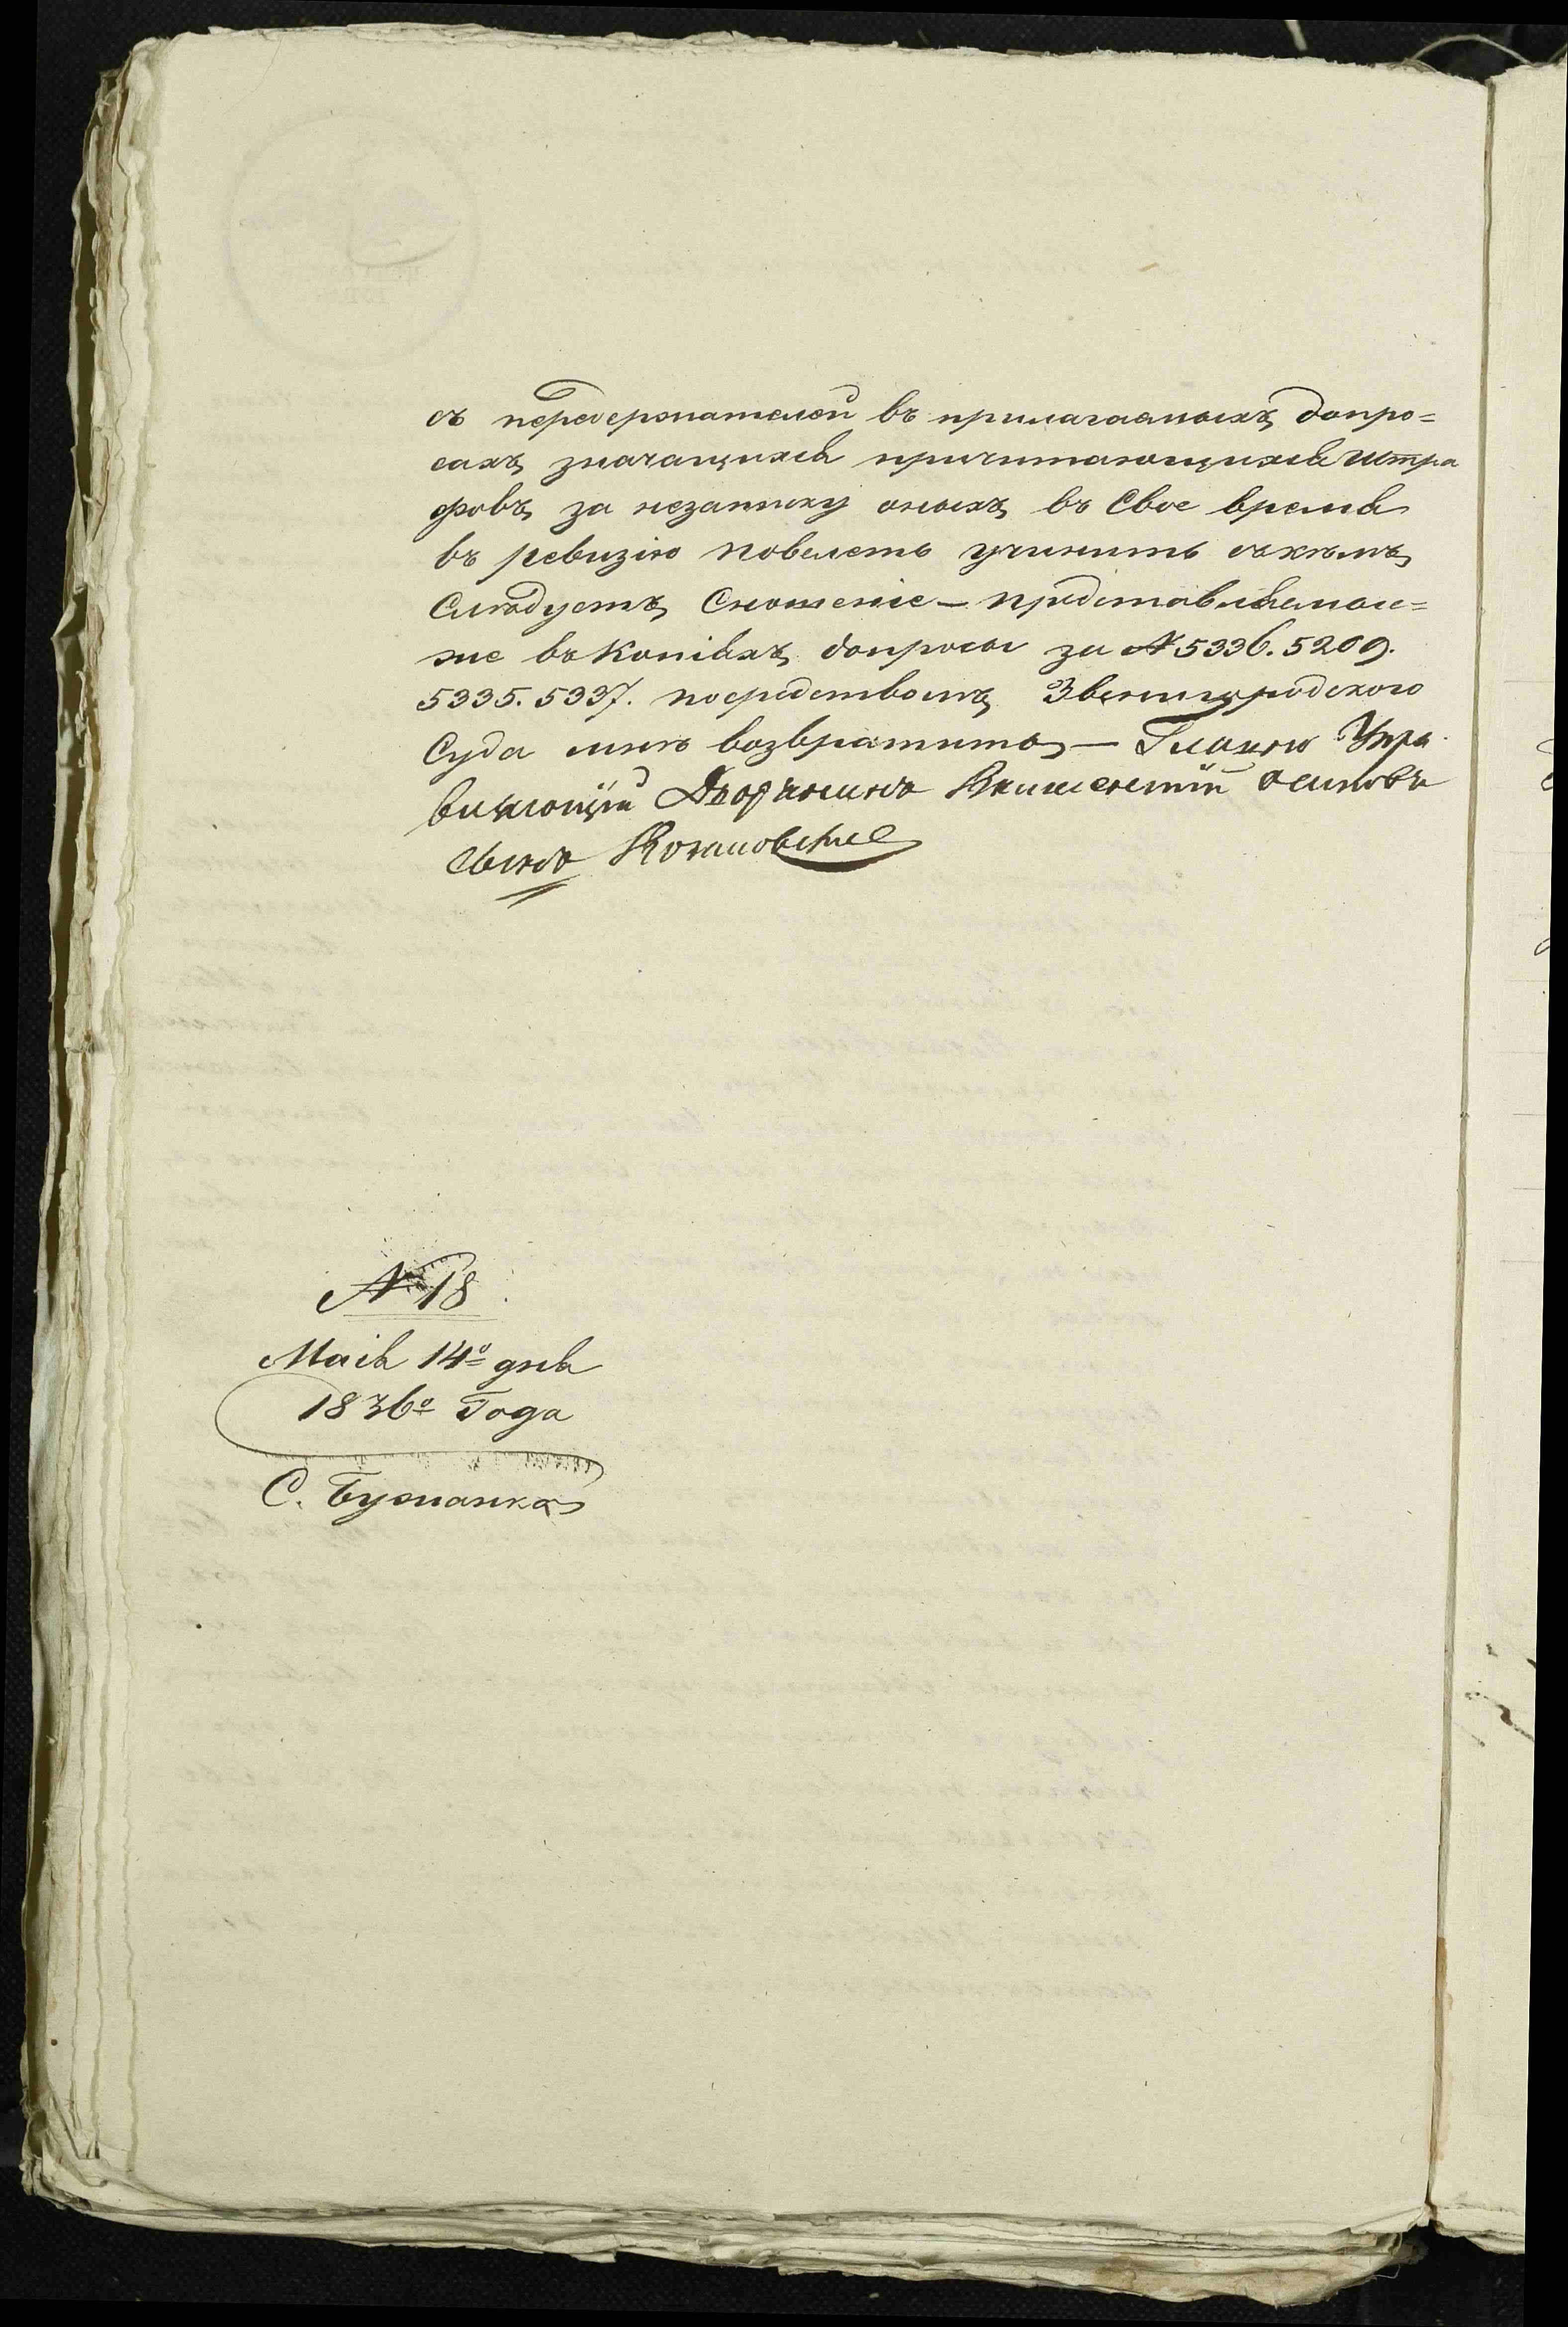 съ передержателей въ прилагаемыхъ допро=
сахъ значащихся причитающихся штра
фовъ за незаписку оныхъ въ свое время
въ ревизію повелеть учинить съ кемъ
Следуетъ Сношеніе — представляемые=
же въ Копіяхъ допросы за № 5336. 5209.
5335. 5337. посредствомъ Звенигородского
Суда мнѣ возвратить — Главно Упра
вляющій Дворянинъ Осиповъ
сынъ
№ 18
Маія 14го дня
1836го Года
С. Бужанка